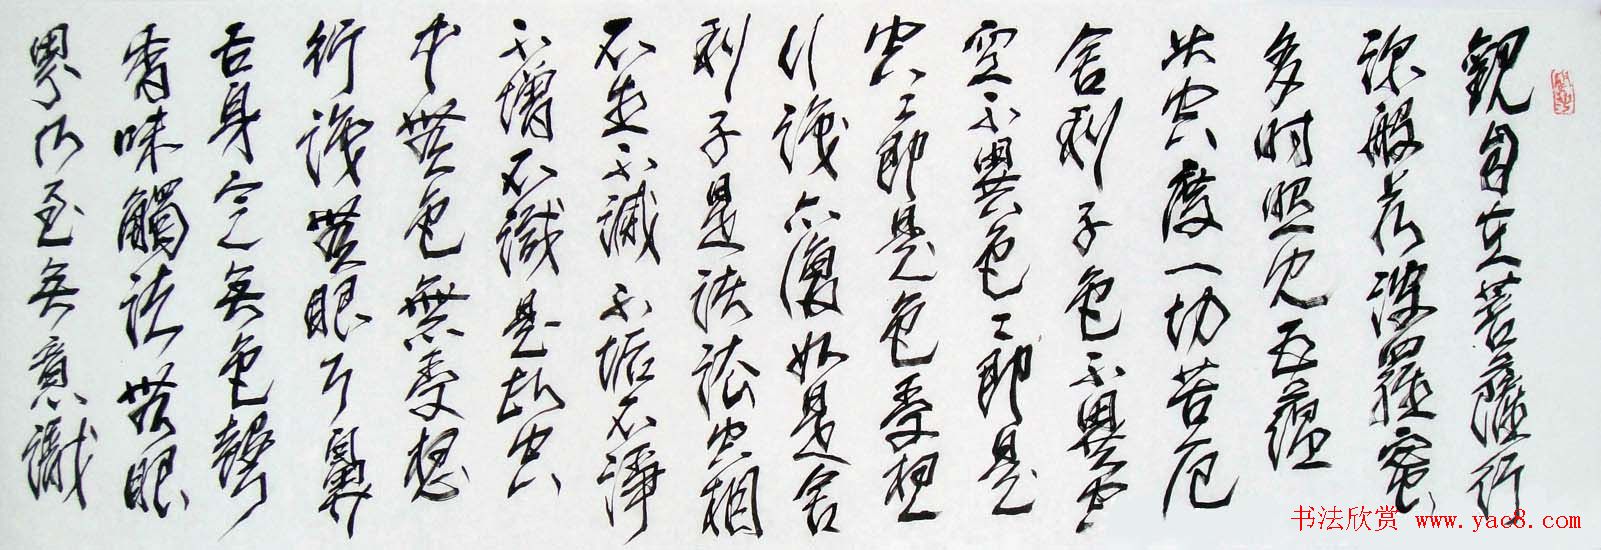 觀自在菩薩行
深般若波羅蜜
多时照見五蘊
皆空度一切苦厄
舍利子色不異空
空不異色々即是
空々即是色受想
行識亦復如是舍
利子是諸法空相
不生不滅不垢不淨
不增不減是故空
中無色無受想
行識無眼耳鼻
舌身意無色聲
香味觸法無眼
界乃至無意識
书法欣赏 www.yac8.com